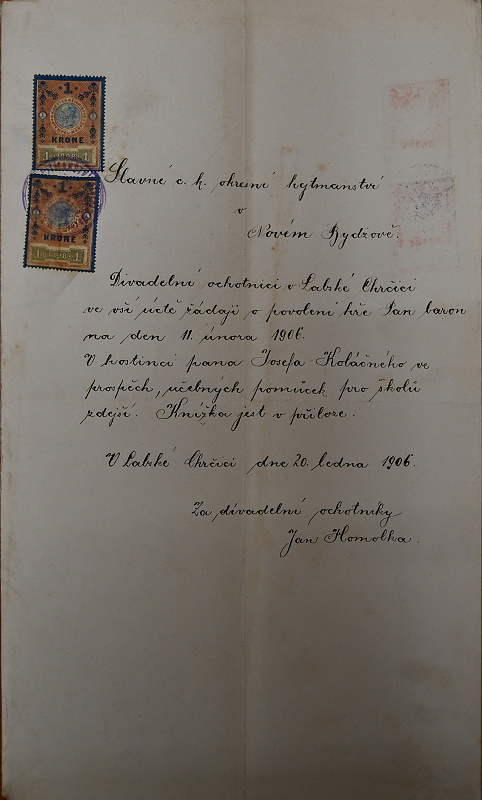 1
KRONE
1 1898 1
1
KRONE
1 1898 1
Slavné c. k. okresní hejtmanství
v
Novém Bydžově.
Divadelní ochotníci v Labské Chrčici
ve vší úctě žádají o povolení hře Pan baron
na den 11. února 1906.
V hostinci pana Josefa Koláčného ve
prospěch, učebných pomůcek pro školu
zdejší. Knížka jest v příloze.
V Labské Chrčici dne 20. ledna 1906.
Za divadelní ochotníky
Jan Homolka.